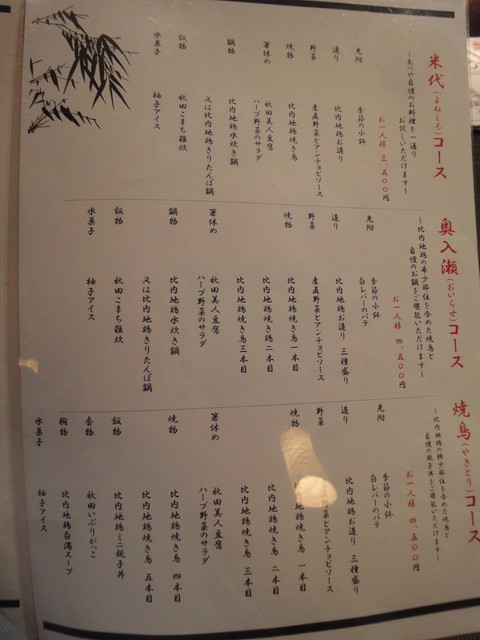 米代(よねしろ)コース
～あべや自慢のお料理を一通り
お試しいただけます～
お一人様 三、五〇〇円
先附 季節の小鉢
造り 比内地鶏お造り
野菜 産直野菜とアンチョビソース
焼物 比内地鶏焼き鳥
箸休め 秋田美人豆腐
ハーブ野菜のサラダ
鍋物 比内地鶏水炊き鍋
又は比内地鶏きりたんぽ鍋
飯物 秋田こまち雑炊
水菓子 柚子アイス
奥入瀬(おいらせ)コース
～比内地鶏の希少部位を含めた焼鳥と
自慢のお鍋をご堪能いただけます～
お一人様 四、五〇〇円
先附 季節の小鉢
白レバーのパテ
造り 比内地鶏お造り 三種盛り
野菜 産直野菜とアンチョビソース
焼物 比内地鶏焼き鳥一本目
比内地鶏焼き鳥二本目
比内地鶏焼き鳥三本目
箸休め 秋田美人豆腐
ハーブ野菜のサラダ
鍋物 比内地鶏水炊き鍋
又は比内地鶏きりたんぽ鍋
飯物 秋田こまち雑炊
水菓子 柚子アイス
焼鳥(やきとり)コース
～比内地鶏の希少部位を含めた焼鳥と
自慢の親子丼をご堪能いただけます～
お一人様 四、五〇〇円
先附 季節の小鉢
白レバーのパテ
造り 比内地鶏お造り 三種盛り
野菜 野菜とアンチョビソース
焼物 地鶏焼き鳥 一本目
比内地鶏焼き鳥 二本目
比内地鶏焼き鳥 三本目
箸休め 秋田美人豆腐
ハーブ野菜のサラダ
焼物 比内地鶏焼き鳥 四本目
比内地鶏焼き鳥 五本目
飯物 比内地鶏ミニ親子丼
香物 秋田いぶりがっこ
椀物 比内地鶏白濁スープ
水菓子 柚子アイス